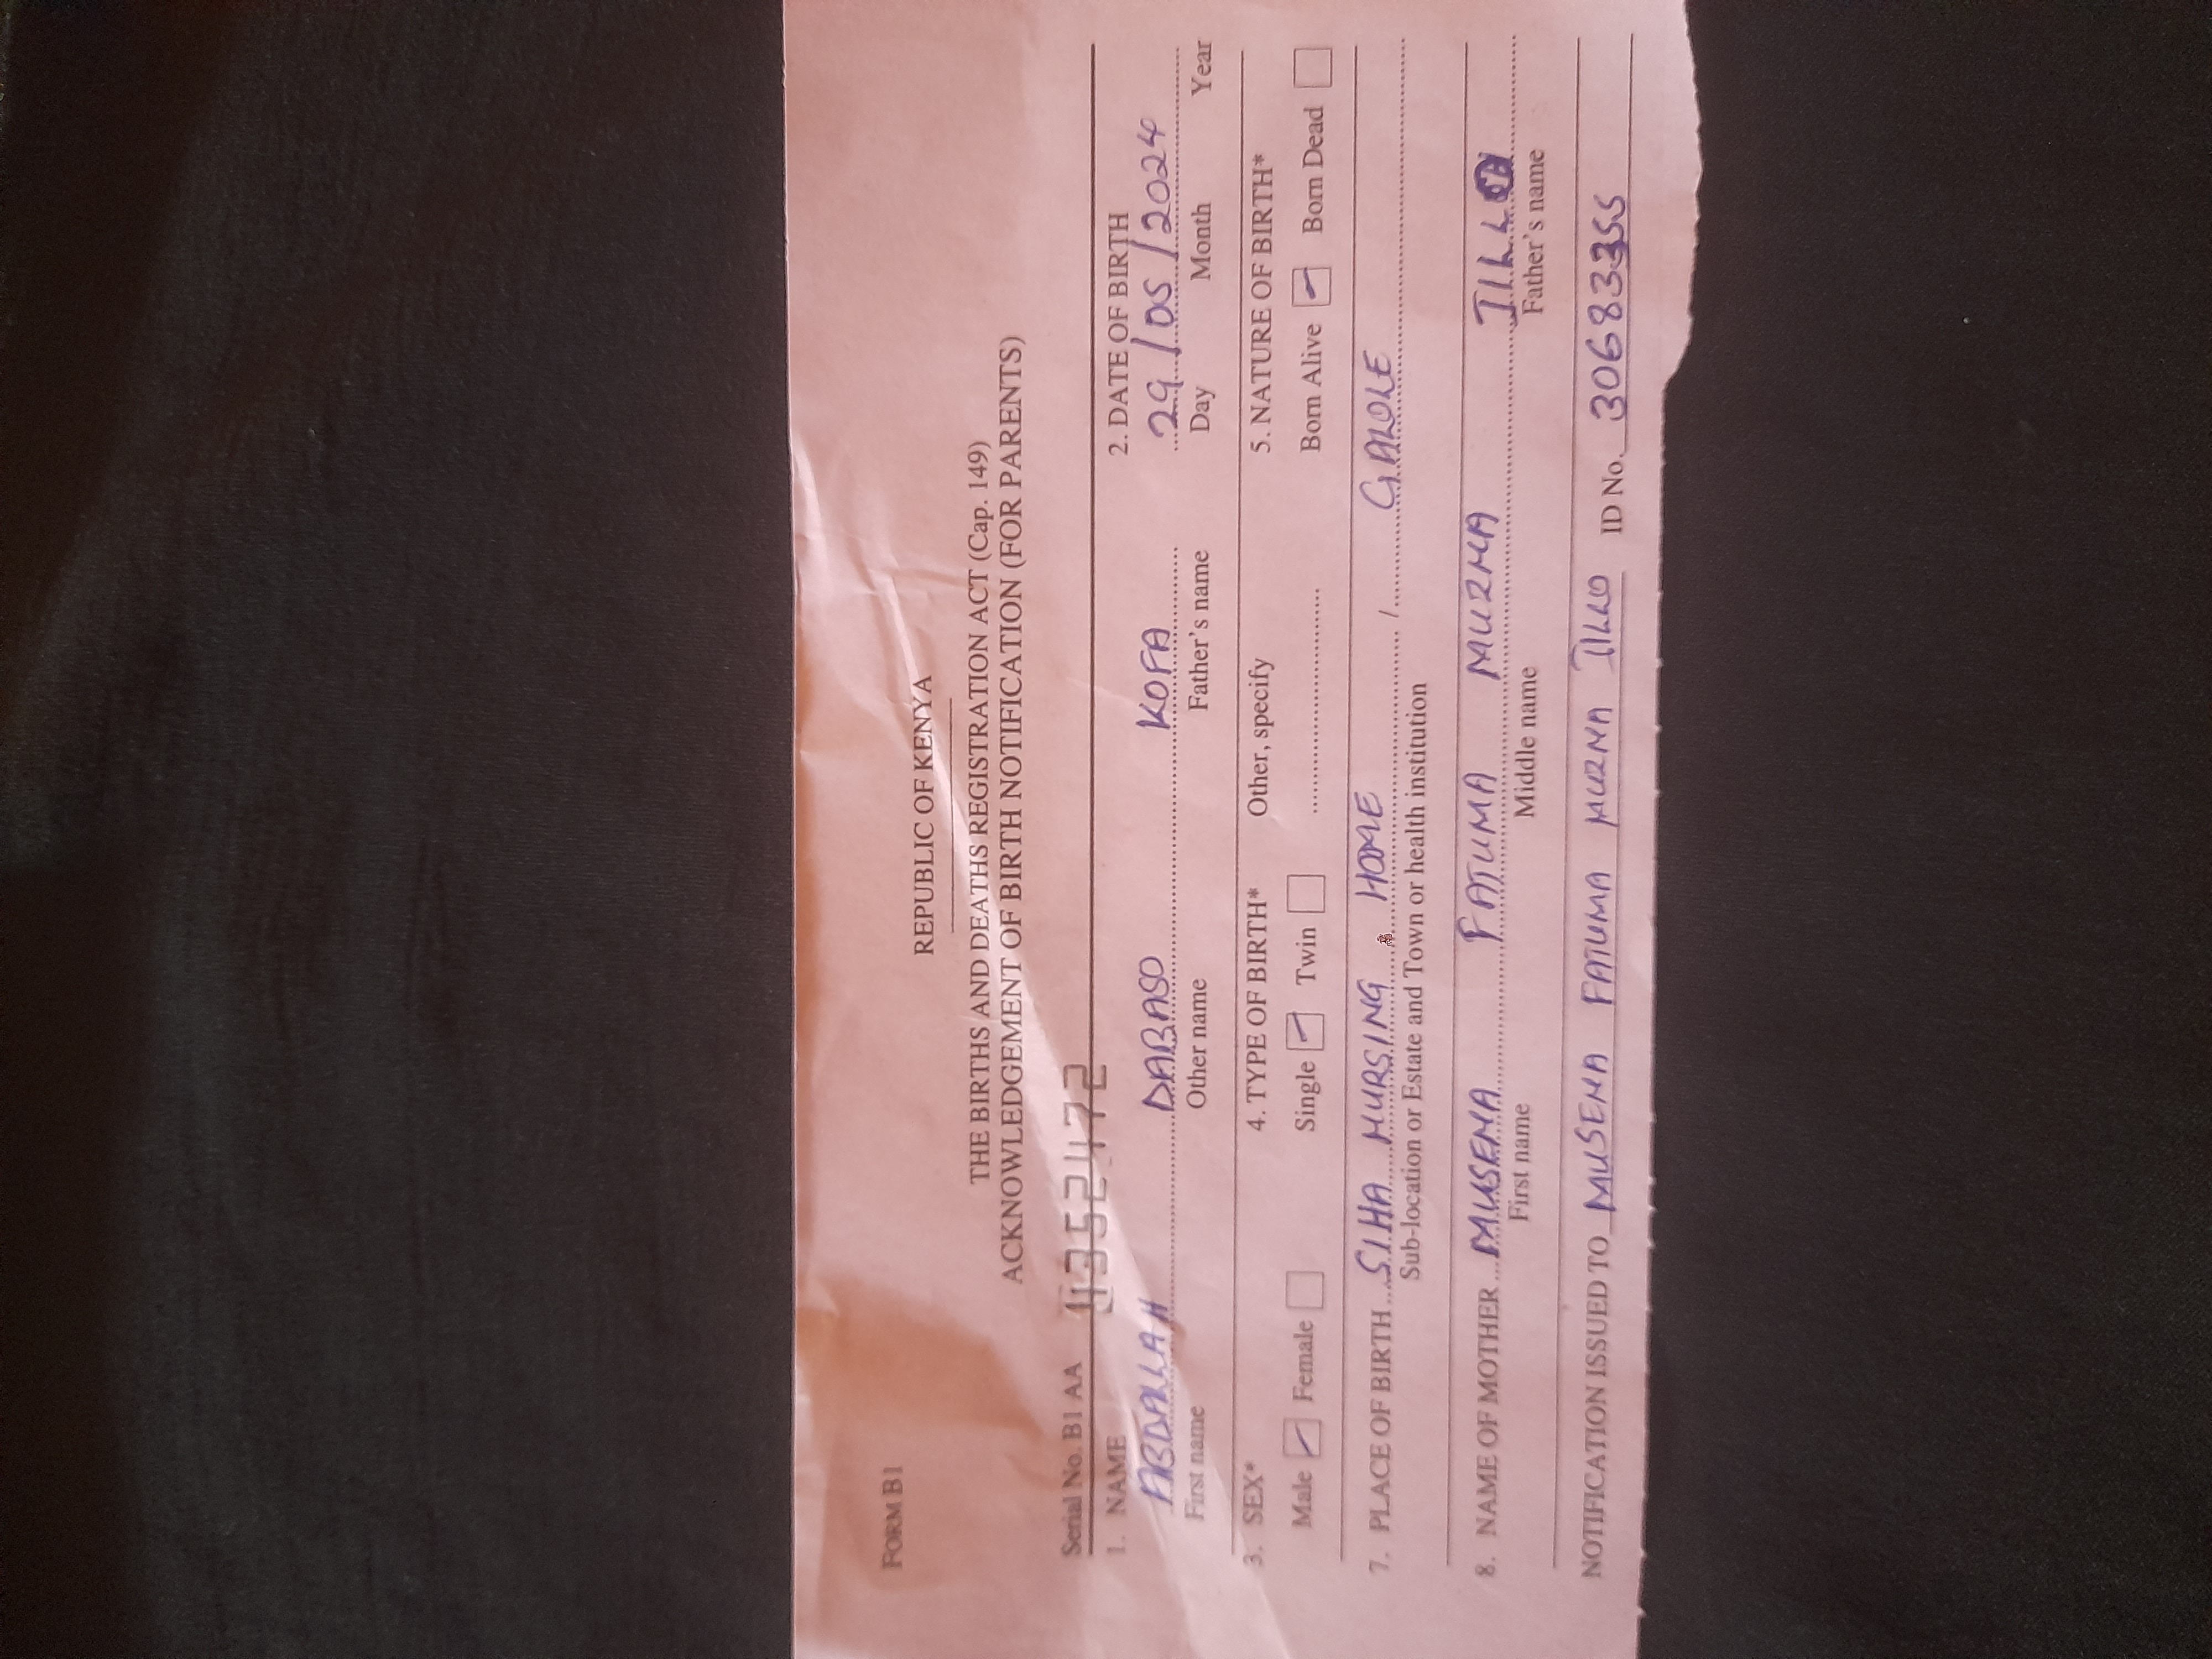 FORM B1
REPUBLIC OF KENYA
THE BIRTHS AND DEATHS REGISTRATION ACT (Cap. 149)
ACKNOWLEDGEMENT OF BIRTH NOTIFICATION (FOR PARENTS)
Serial No. B1 AA 4352472
1. NAME 2. DATE OF BIRTH
ABDALLAH DABASO KOFA 29/05/2024
First name Other name Father's name Day Month Year
3. SEX* 4. TYPE OF BIRTH* Other, specify 5. NATURE OF BIRTH*
Male Female Single Twin Born Alive Born Dead
7. PLACE OF BIRTH SIHA NURSING HOME / GALOLE
Sub-location or Estate and Town or health institution
8. NAME OF MOTHER MUSENA FATUMA MUZNA JILLO
First name Middle name Father's name
NOTIFICATION ISSUED TO MUSENA FATUMA MUZNA JILLO ID No. 30683355